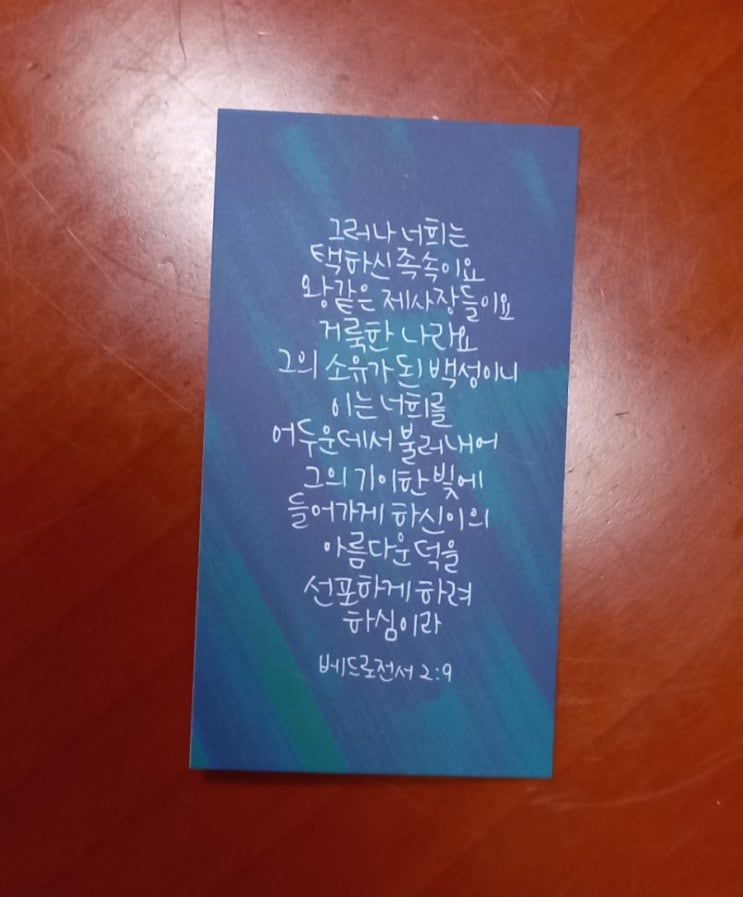 그러나 너희는
택하신 족속이요
왕같은 제사장들이요
거룩한 나라요
그의 소유가 된 백성이니
이는 너희를
어두운데서 불러내어
그의 기이한 빛에
들어가게 하신이의
아름다운 덕을
선포하게 하려
하심이라
베드로전서 2:9